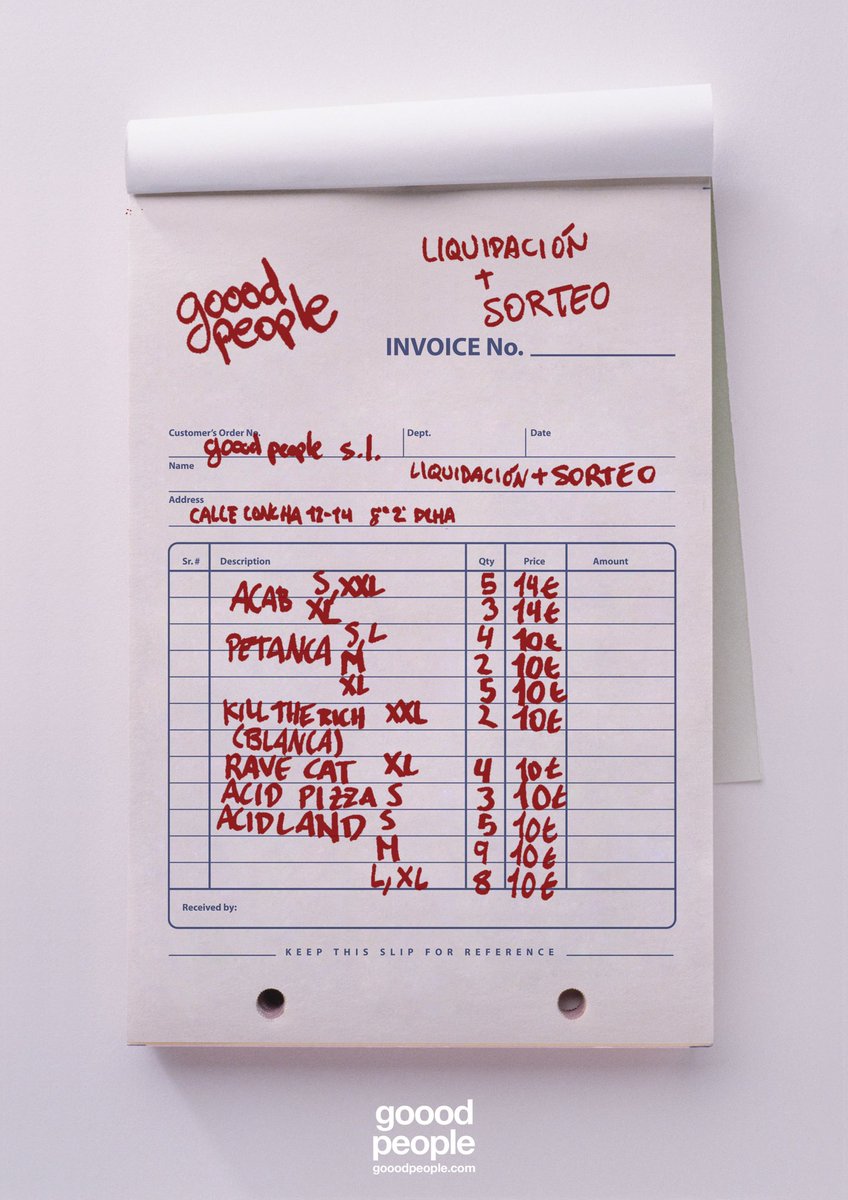 goood
people
LIQUIDACIÓN
+
SORTEO
INVOICE No.
Customer's Order No.
Dept.
Date
goood people s.l.
Name
LIQUIDACIÓN + SORTEO
Address
CALLE CONCHA 12-14 5º 2ª DCHA
Sr. # Description Qty Price Amount
ACAB S, XXL 5 14€
XL 3 14€
PETANCA S, L 4 10€
M 2 10€
XL 5 10€
KILL THE RICH XXL 2 10€
(BLANCA)
RAVE CAT XL 4 10€
ACID PIZZA S 3 10€
ACIDLAND S 5 10€
M 9 10€
L, XL 8 10€
Received by:
KEEP THIS SLIP FOR REFERENCE
goood
people
gooodpeople.com